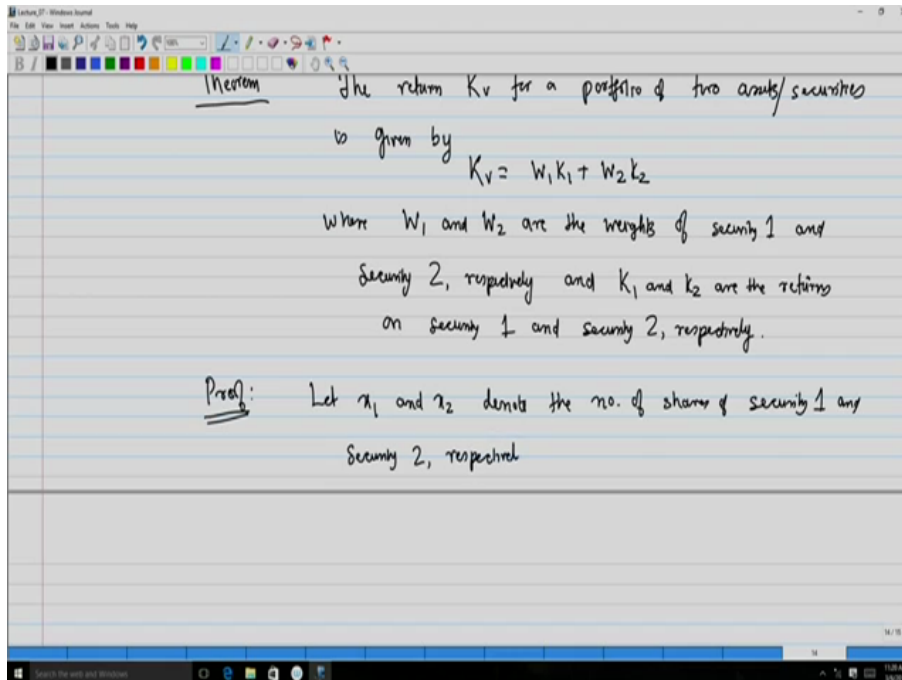 Lecture_07 - Windows Journal
File Edit View Insert Actions Tools Help
Theorem The return Kv for a portfolio of two assets/securities
is given by
Kv = W1K1 + W2K2
where W1 and W2 are the weights of security 1 and
Security 2, respectively and K1 and K2 are the returns
on security 1 and security 2, respectively.
Proof: Let x1 and x2 denote the no. of shares of security 1 and
Security 2, respectivel
14
Search the web and Windows